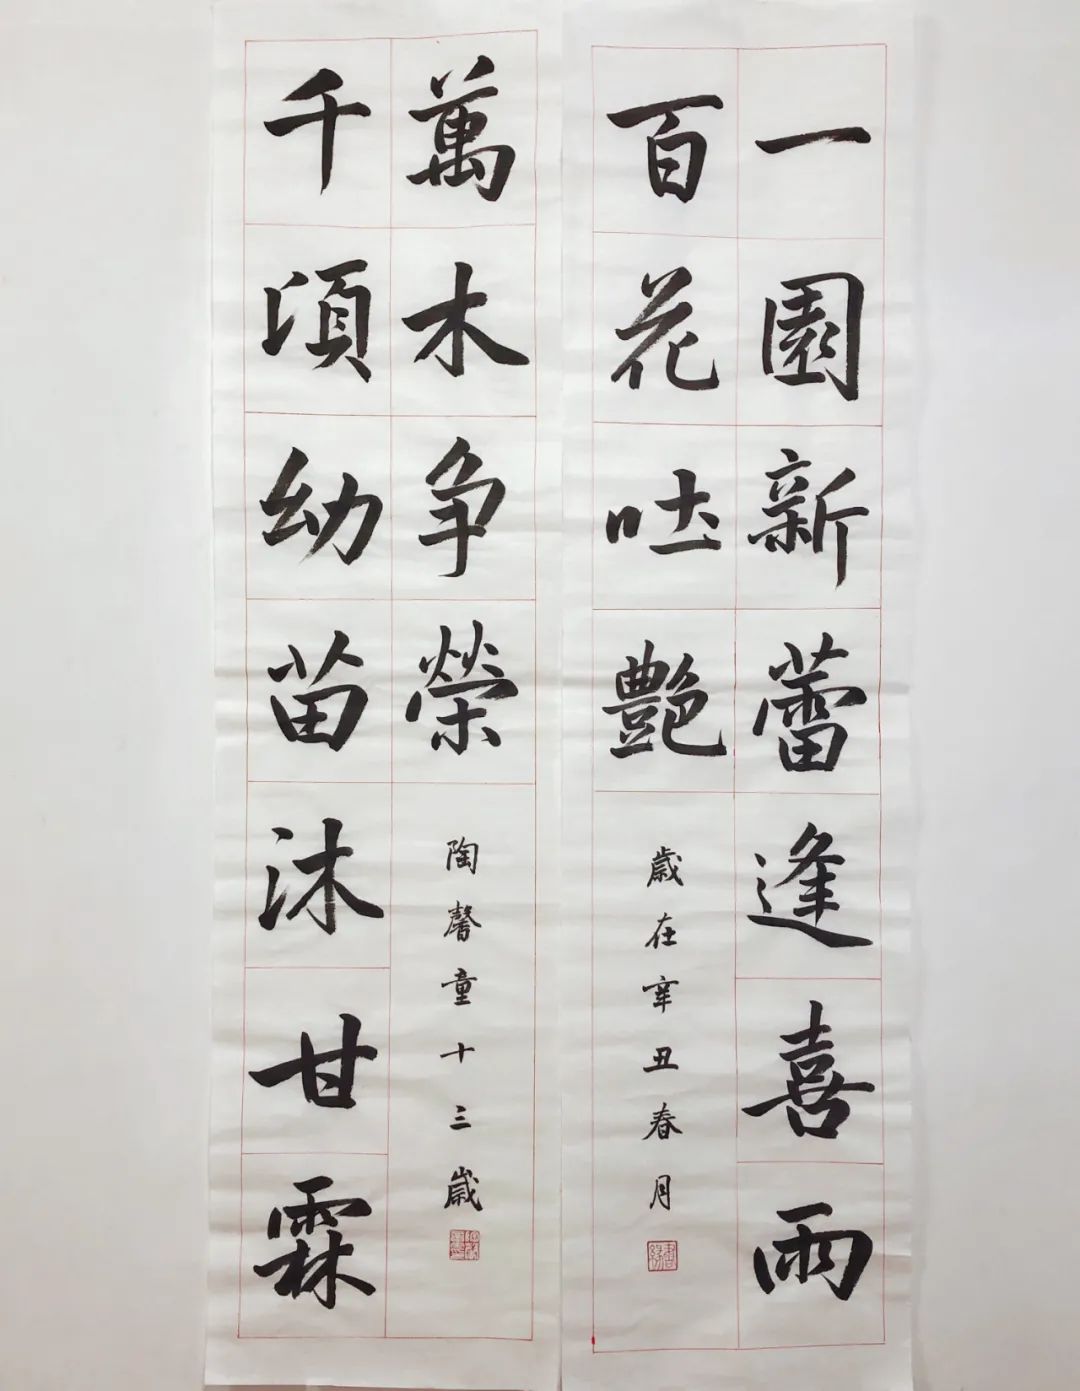 一園新蕾逢喜雨
百花吐艷
歲在辛丑春月
千頃幼苗沐甘霖
萬木争榮
陶馨童十三歲